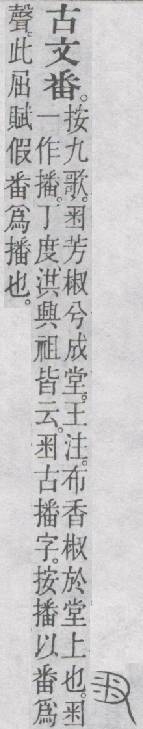 古文番。按九歌。芳椒兮成堂。王注。布香椒於堂上也。
一作播。丁度、洪興祖皆云。古播字。按播以番爲
聲。此屈賦假番爲播也。